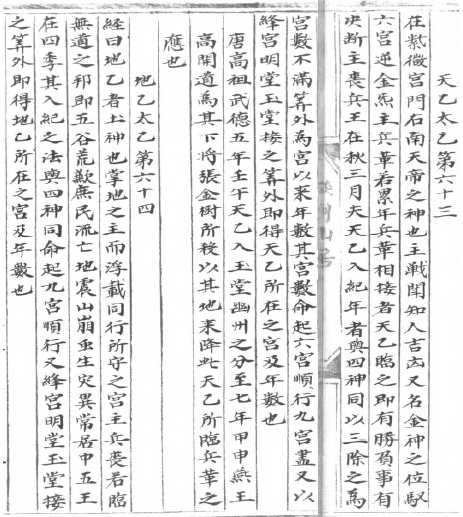 天乙太乙第六十三
在紫微宫門右南天帝之神也主戰鬪知人吉凶又名金神之位馭
六宫逆金炁主兵革若累年兵革相接者天乙臨之即有勝負事有
决断主喪兵王在秋三月夫天乙入紀年者與四神同以三除之為
宫數不滿筭外為宫以来年數其宫數命起六宫順行九宫盡又以
絳宫明堂玉堂接之筭外即得天乙所在之宫及年數也
唐高祖武德五年壬午天乙入玉堂幽州之分至七年甲申燕王
高開道為其下將張金樹所殺以其地来降此天乙所臨兵革之
應也
地乙太乙第六十四
経曰地乙者土神也掌地之主而浮載同行所守之宫主兵喪若臨
無道之邦即五谷荒歉庶民流亡地震山崩虫生灾異常居中五王
在四季其入紀之法與四神同命起九宫順行又絳宫明堂玉堂接
之筭外即得地乙所在之宫及年數也